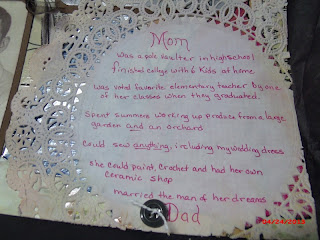 Mom
was a pole vaulter in highschool
finished college with 6 kids at home
Was voted favorite elementary teacher by one
of her classes when they graduated.
Spent summers working up produce from a large
garden and an orchard
Could sew anything, including my wedding dress
She could paint, Crochet and had her own
Ceramic Shop
married the man of her dreams
Dad
04/24/2013